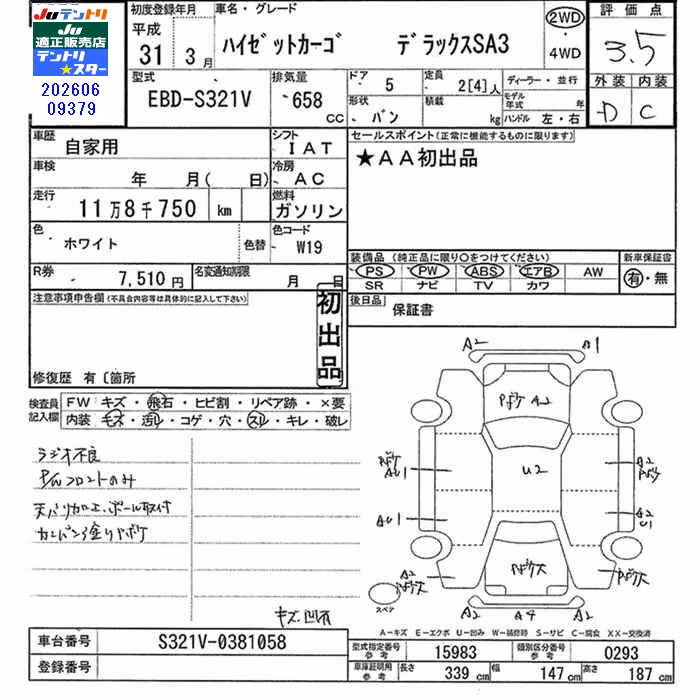 Juテントリ Ju
適正販売店
テントリ
★スター
202606
09379
初度登録年月
平成
31 3月
車名・グレード
ハイゼットカーゴ デラックスSA3
2WD
・
4WD
評価点
3.5
外装 内装
D C
型式
EBD-S321V
排気量
658
CC
ドア 5
形状 バン
定員 2[4]人
積載 kg
ディーラー・並行
モデル年式 年
ハンドル 左・右
車歴 自家用
シフト IAT
車検 年 月( 日)
冷房 AC
走行 11万8千750 km
燃料 ガソリン
色 ホワイト 色替
色コード W19
R券 7,510円
名変通知期限 月 日
セールスポイント(正常に機能するものに限ります)
★AA初出品
装備品(純正品に限り○をつけてください)
PS PW ABS エアB AW
SR ナビ TV カワ
新車保証書
有・無
後日品 保証書
注意事項申告欄(不具合内容等は具体的に記入して下さい)
初出品
修復歴 有〔箇所
検査員記入欄
FW キズ・飛石・ヒビ割・リペア跡・×要
内装 モズ・汚レ・コゲ・穴・スレ・キレ・破レ
ラジオ不良
P/Wフロントのみ
天バリ加工、ポール取付
カンバン塗りボケ
キズ、凹有
A2 A1
Pボケ A2
Pボケ
AU1
U2
A2
Pボケ
AU1
A2
U1
A2
Pボケ
Pボケ大
Pボケ大
スペア
A2 A4 A2
A-キズ E-エクボ U-凹み W-補修跡 S-サビ C-腐食 XX-交換済
車台番号 S321V-0381058
登録番号
型式指定番号 参考 15983
類別区分番号 参考 0293
車庫証明用 参考 長さ 339cm 幅 147cm 高さ 187cm